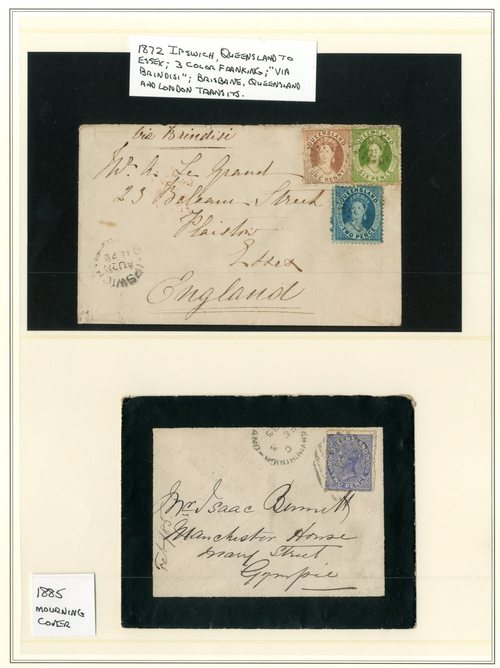 1872 IPSWICH, QUEENSLAND TO
ESSEX; 3 COLOR FRANKING; "VIA
BRINDISI"; BRISBANE, QUEENSLAND
AND LONDON TRANSITS.
via Brindisi
QUEENSLAND
ONE PENNY
QUEENSLAND
SIX PENCE
QUEENSLAND
TWO PENCE
Mr. A. Le Grand
23 Street
Plaistow
Essex
England
IPSWICH
AU 28
72
QUEENSLAND
TWO PENCE
Mr Isaac Bennett
Manchester House
Mary Street
Gympie
1885
MOURNING
COVER